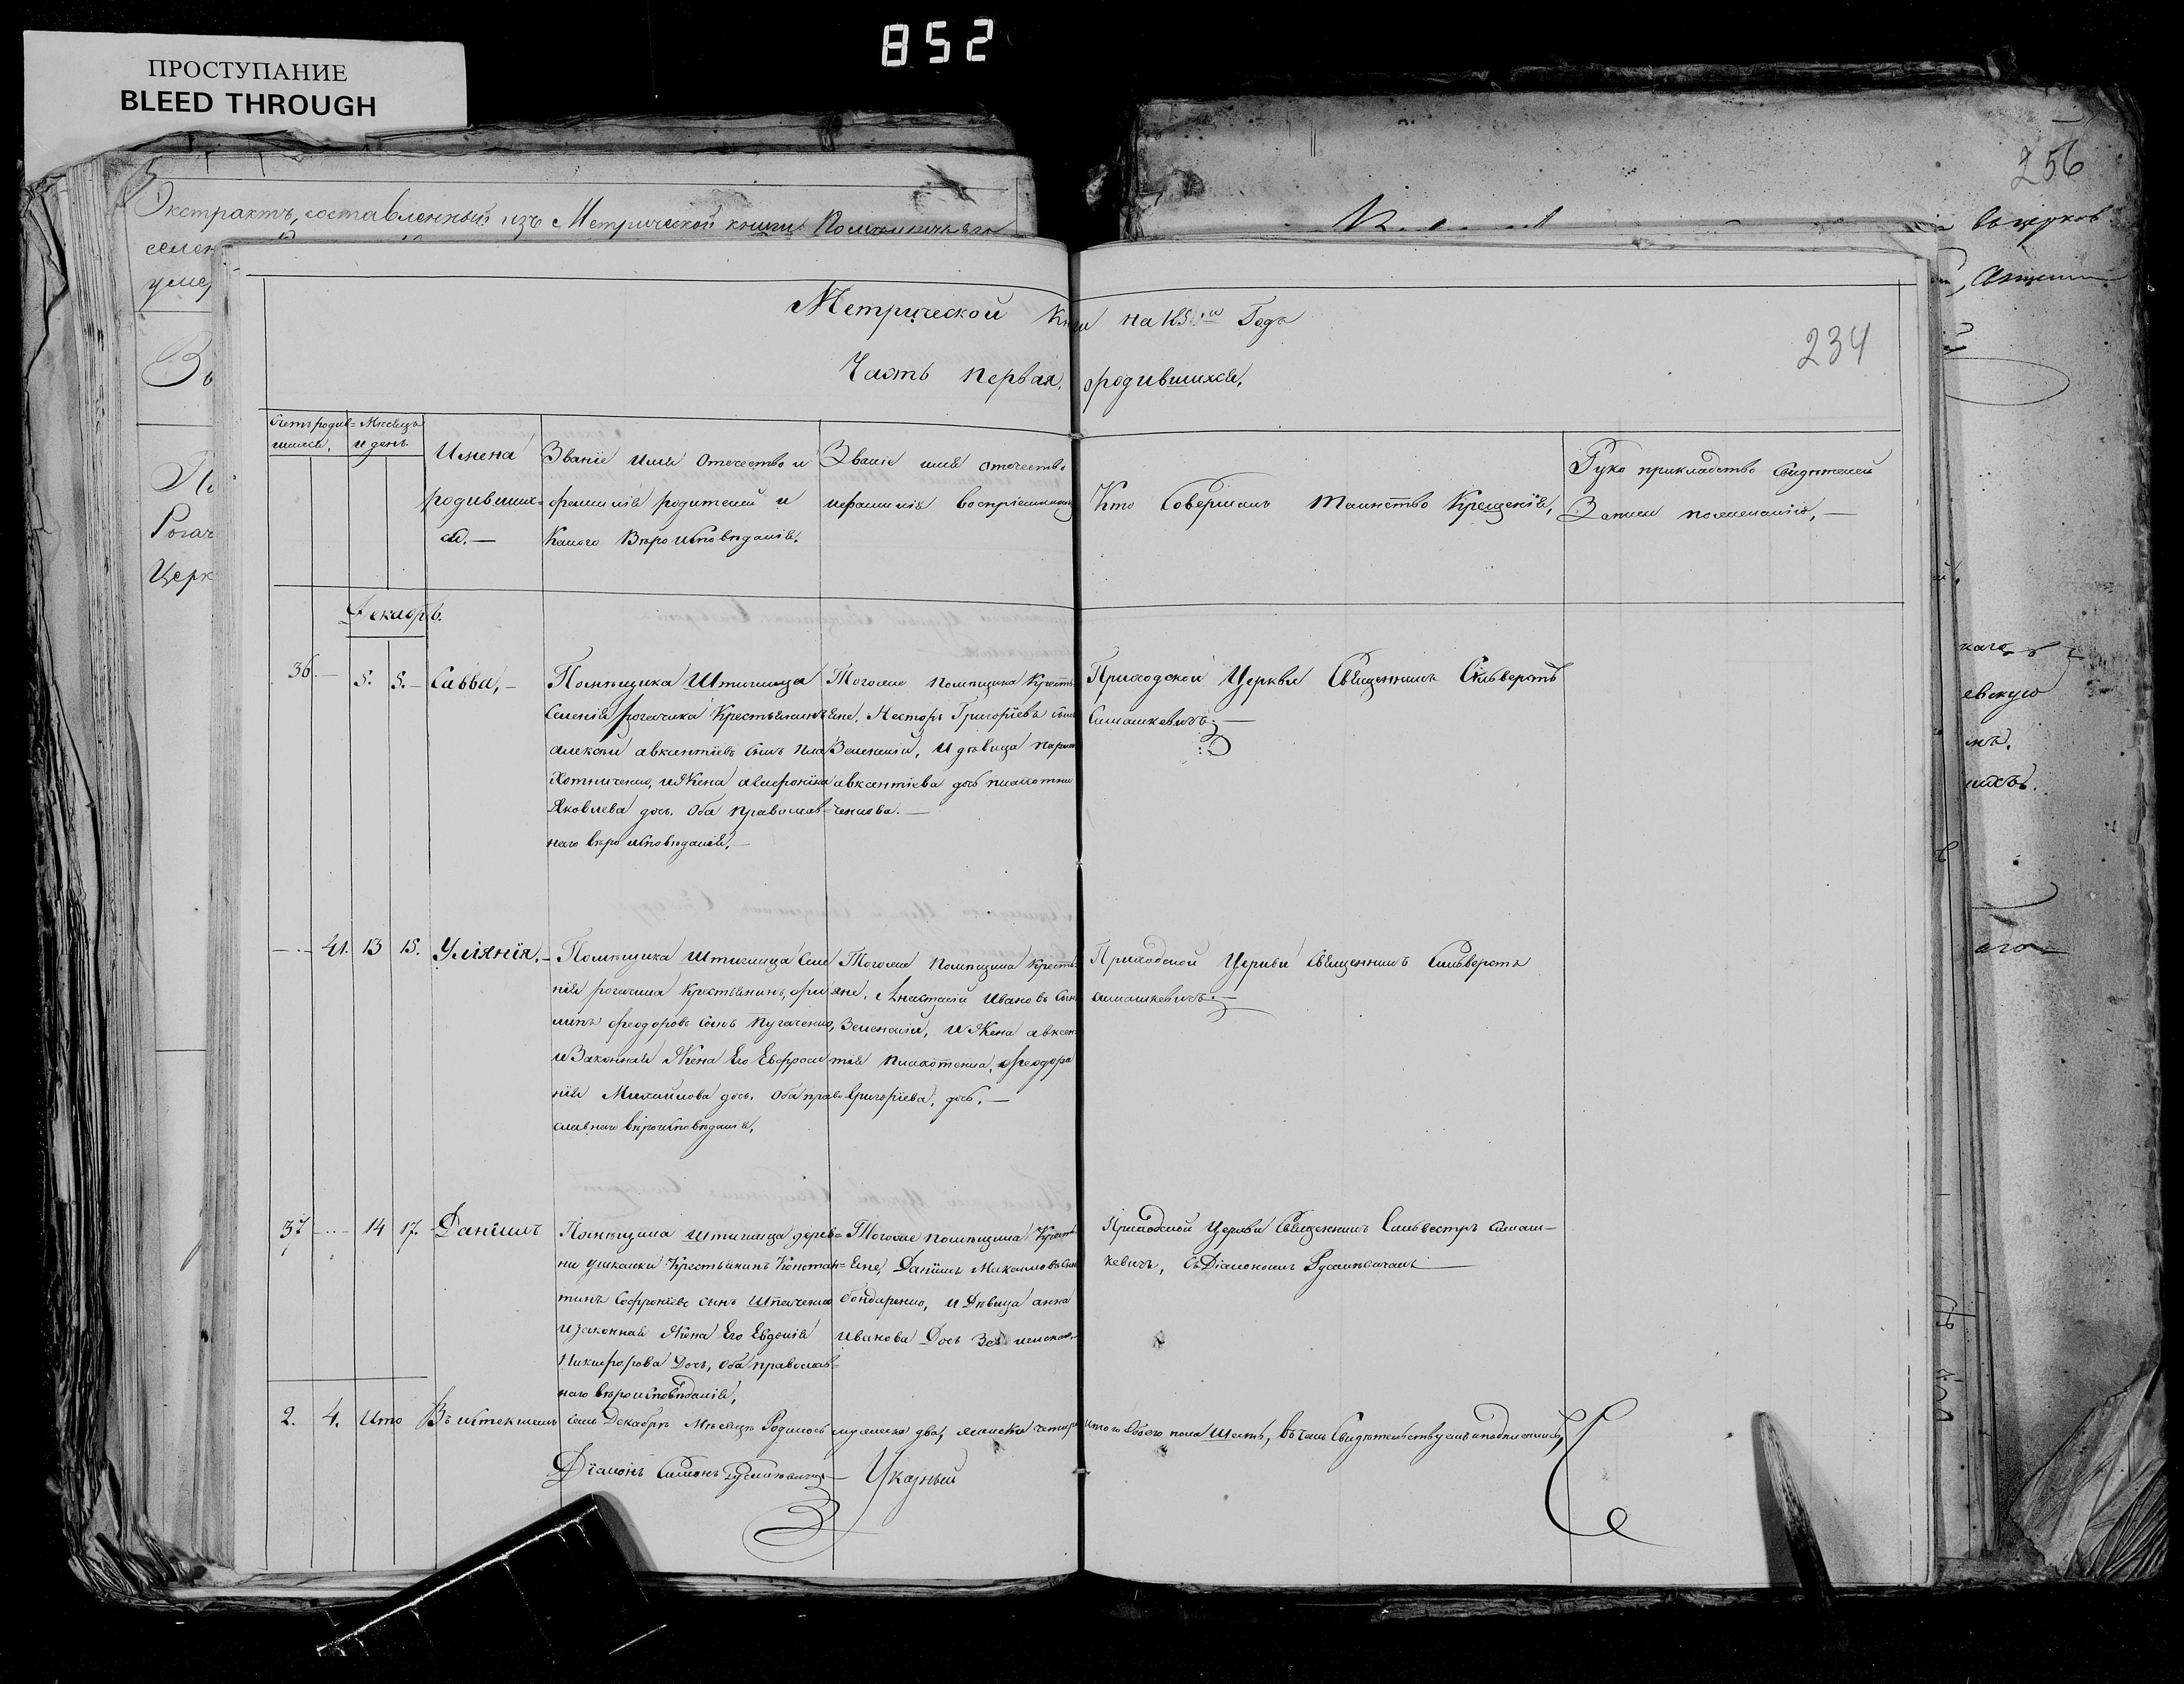 852
ПРОСТУПАНИЕ
BLEED THROUGH
256
Экстрактъ, составленный изъ Метрической книги
Рогач
Церк
Метрической Книги на Годъ
234
Часть первая, о родившихся,
Счетъ родив=
шихся,
Мѣсяцъ
и день
Имена
родивших=
ся.—
Званіе имя Отечество и
фамилія родителей и
Какого Вѣроисповѣданія.
Званіе имя отечество
и фамилія воспріемниковъ
Кто Совершалъ Таинство Крещенія,
Руко прикладство Свидѣтелей
Записи по желанію,—
Декабрь.
36.— 5. 5.— Савва,—
Помѣщика Штиглица
Селенія Рогачика Крестьянинъ
Алексѣй Авксентіевъ сынъ Пла
хотниченко, и Жена
Яковлева дочь. Оба Православ=
наго вѣроисповѣданія,—
Тогоже Помѣщика Крестья
яне, Несторъ Григоріевъ сынъ
Зеленскій, и дѣвица
Авксентіева дочь Плахотни
ченкова.—
Приходской Церкви Священникъ Сильверстъ
Симашкевичъ.—
— 41. 13 15. Уліянія.—
Помѣщика Штиглица Селе
нія Рогачика Крестьянинъ, Фи
липъ Феодоровъ сынъ Пугаченко,
и Законная Жена Его Евфроси
нія Михайлова дочь. Оба право
славнаго вѣроисповѣданія,
Тогоже Помѣщика Крестья
яне, Анастасій Ивановъ Сынъ
Зеленскій, и Жена Авксен
тія Плахотенка, Феодора
Григоріева, дочь.—
Приходской Церкви Священникъ Сильверстъ
Симашкевичъ.—
37 — 14 17. Даніилъ
Помѣщика Штиглица дерев=
ни Ушкалки Крестьянинъ Констан=
тинъ Софроніевъ сынъ Шпаченко
и законная Жена Его Евдокія
Никифорова Дочь, Оба православ=
наго вѣроисповѣданія,
Тогоже помѣщика Крестья
яне, Даніилъ Михаиловъ сынъ
Бондаренко, и Дѣвица Анна
Иванова Дочь
Приходской Церкви Священникъ Сильвестръ Симаш—
кевичъ, съ Діакономъ
2. 4. Ито Въ истекшемъ семъ Декабрѣ Мѣсяцѣ Родилось мужеска два, женска четыре итого обоего пола Шесть, въ чемъ Свидѣтельствуемъ и подписмися,
Діаконъ Симонъ — Указный